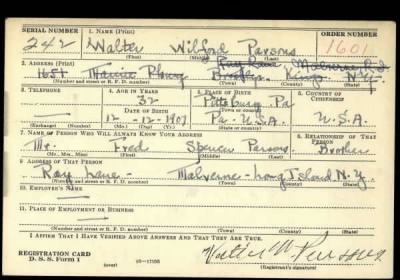 SERIAL NUMBER 1. NAME (Print) ORDER NUMBER
242 Walter Wilford Parsons 1601
(First) (Middle) (Last)
2. ADDRESS (Print)
1654 Brooklyn Kings N.Y.
(Number and street or R. F. D. number) (Town) (County) (State)
3. TELEPHONE 4. AGE IN YEARS 5. PLACE OF BIRTH 6. COUNTRY OF CITIZENSHIP
32 Pittsburg Pa
DATE OF BIRTH (Town or county)
12-12-1907 Pa - U.S.A. U.S.A.
(Exchange) (Number) (Mo.) (Day) (Yr.) (State or country)
7. NAME OF PERSON WHO WILL ALWAYS KNOW YOUR ADDRESS 8. RELATIONSHIP OF THAT PERSON
Mr. Fred Spencer Parsons Brother
(Mr., Mrs., Miss) (First) (Middle) (Last)
9. ADDRESS OF THAT PERSON
Ray Lane - Malverne - Long Island N.Y.
(Number and street or R. F. D. number) (Town) (County) (State)
10. EMPLOYER'S NAME
11. PLACE OF EMPLOYMENT OR BUSINESS
(Number and street or R. F. D. number) (Town) (County) (State)
I AFFIRM THAT I HAVE VERIFIED ABOVE ANSWERS AND THAT THEY ARE TRUE.
REGISTRATION CARD
D. S. S. Form 1 Walter W Parsons
(Registrant's signature)